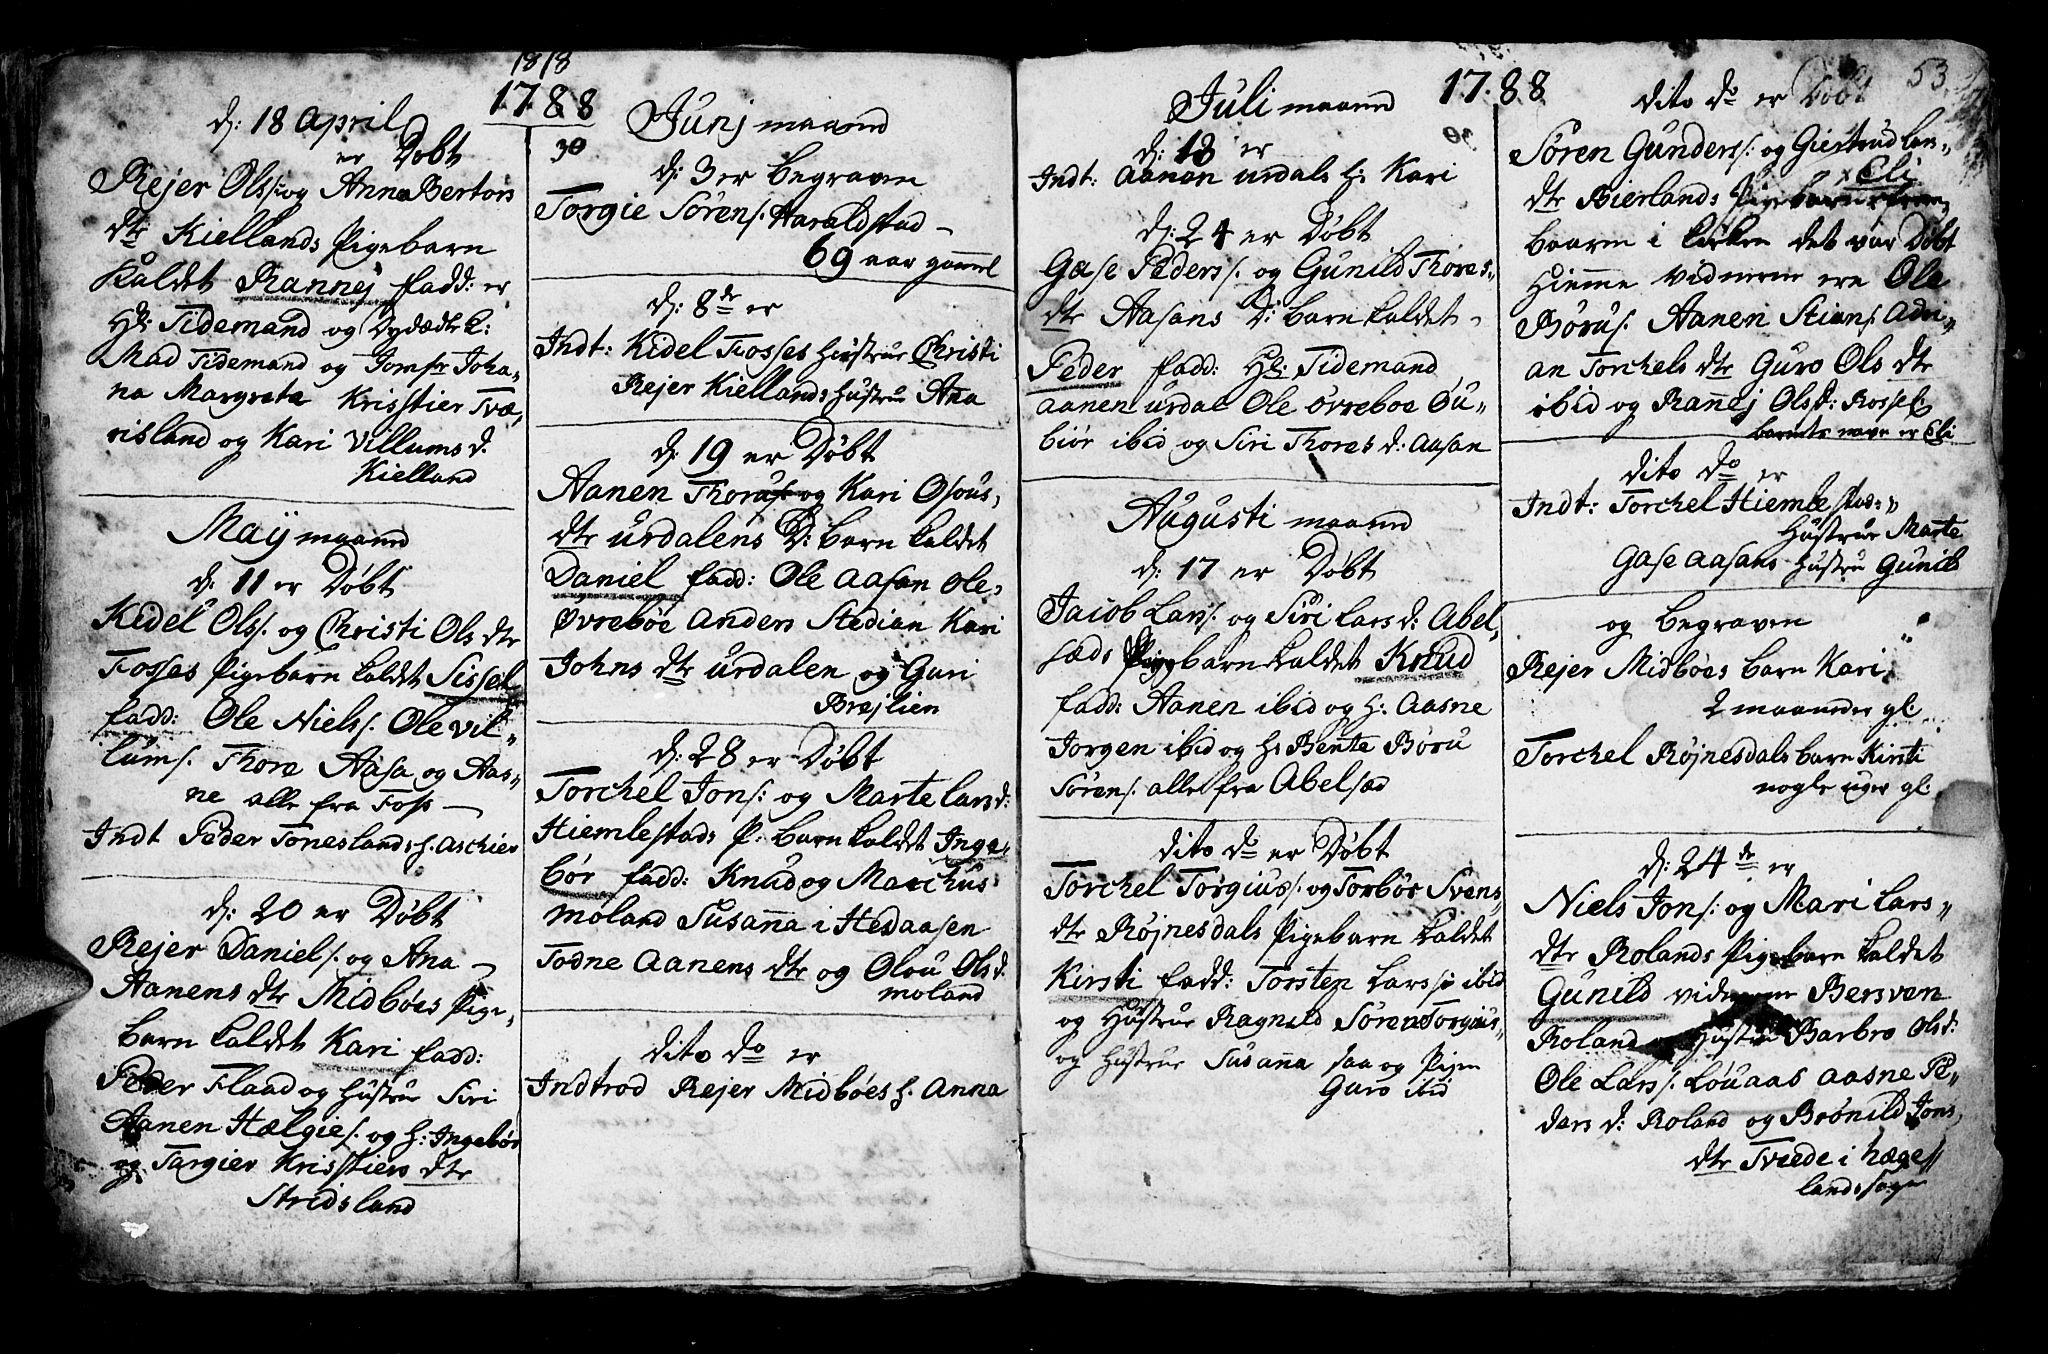 1818
1788
d: 18 April
er Døbt
Rejer Ols: og Anna Bertors
dtr Kiellands Pigebarn
kaldet Rannej fadd: er
Hr: Tidemand og
Mad Tidemand og Jomfr Joha„
na Margreta Krisstier Tvæ„
risland og Kari Villums d.
Kielland
Maij maaned
d. 11 er Døbt
Kedel Ols. og Christi Ols dtr
Fosses Pigebarn kaldet Sissel
fadd: Ole Niels. Ole Vil„
lums. Thore Aasa og Aas„
ne alle fra Foss
Indt Peder Toneslands h. Aschier
d: 20 er Døbt
Rejer Daniels. og Ana
Aanens dtr Midbøes Pige„
barn kaldet Kari fadd:
Peder Flaad og Hustrue Siri
Aanen Hælgies. og h: Ingebør
og Targier Krisstiers dtr
Stridsland
Junj maaned
30
d: 3 er begraven
Torgie Sörens. Haraldstad
69 aar gammel
d: 8de er
Indt: Kidel Fosses Hustrue Christi
Rejer Kiellands Hustrue Ana
d: 19 er Døbt
Aanen Thorus. og Kari Osous„
dtr Urdalens D: barn kaldet
Daniel fadd: Ole Aasan Ole
Øvrebøe Anders Stedian Kari
Johns dtr Urdalen og Guri
Brejlien
d: 28 er Døbt
Torchel Jons: og Marte Lars d:
Hiemlestads P: barn kaldet Inge„
bør fadd: Knud og Marchus
Moland Susanna i Hedaasen
Todne Aanens dtr og Olou Ols d.
Moland
dito do er
Indtrod Rejer Midbøes h. Anna
Juli maaned
d: 13 er
Indt: Aanen Urdals h: Kari
d: 24 er Døbt
Gase Peders. og Gunild Thores„
dtr Aasans D: barn kaldet
Peder fadd: Hr: Tidemand
Aanen Urdal Ole Øvreboe Gu„
biør ibid og Siri Thores d: Aasan
Augusti maaned
d: 17 er Døbt
Jacob Lars. og Siri Lars d: Abel„
sæds Pigebarn kaldet Knud
fadd: Aanen ibid og h: Aasne
Jorgen ibid og h: Bente Børu
Sörens. alle fra Abelsæd
dito do er Døbt
Torchel Torgius. og Torbør Svens„
dtr Røjnesdals Pigebarn kaldet
Kirsti fadd: Torsten Lars: ibid
og Hustrue Ragnild Sören Torgius„
og Hustrue Susanna saa og Pigen
Guro ibid
1788
53
dito do er Døbt
Sören Gunders: og Giertrud Lars„
Eli
dtr Bierlands Pigebarn frem„
baaren i kirken det var Døbt
Hiemme vidnerne ere Ole
Børus. Aanen Stians. Adri„
an Torchels dtr Guro Ols dtr
ibid og Rannej Ols d: Rossel:
barnets navn er Eli
dito do er
Indt: Torchel Hiemlestads„
Hustrue Marte
Gase Aasans Hustru Gunild
og begraven
Rejer Midbøes barn Kari
2 maaneder gl:
Torchel Røjnesdals barn Kirsti
nogle uger gl:
d: 24de er
Niels Jons: og Mari Lars„
dtr Rolands Pigebarn kaldet
Gunild vidnerne Bersven
Roland og Hustrue Barbro Ols d:
Ole Lars. Løuaas Aasne Pe„
ders d: Roland og Brönild Jons„
dtr Tveede i Hæge„
lands sogn